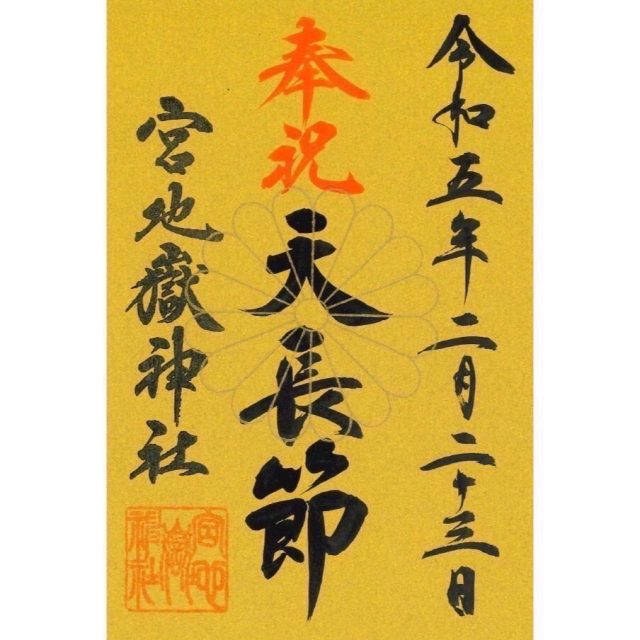 令和五年二月二十三日
奉祝
天長節
宮地嶽神社
宮地
嶽
神社